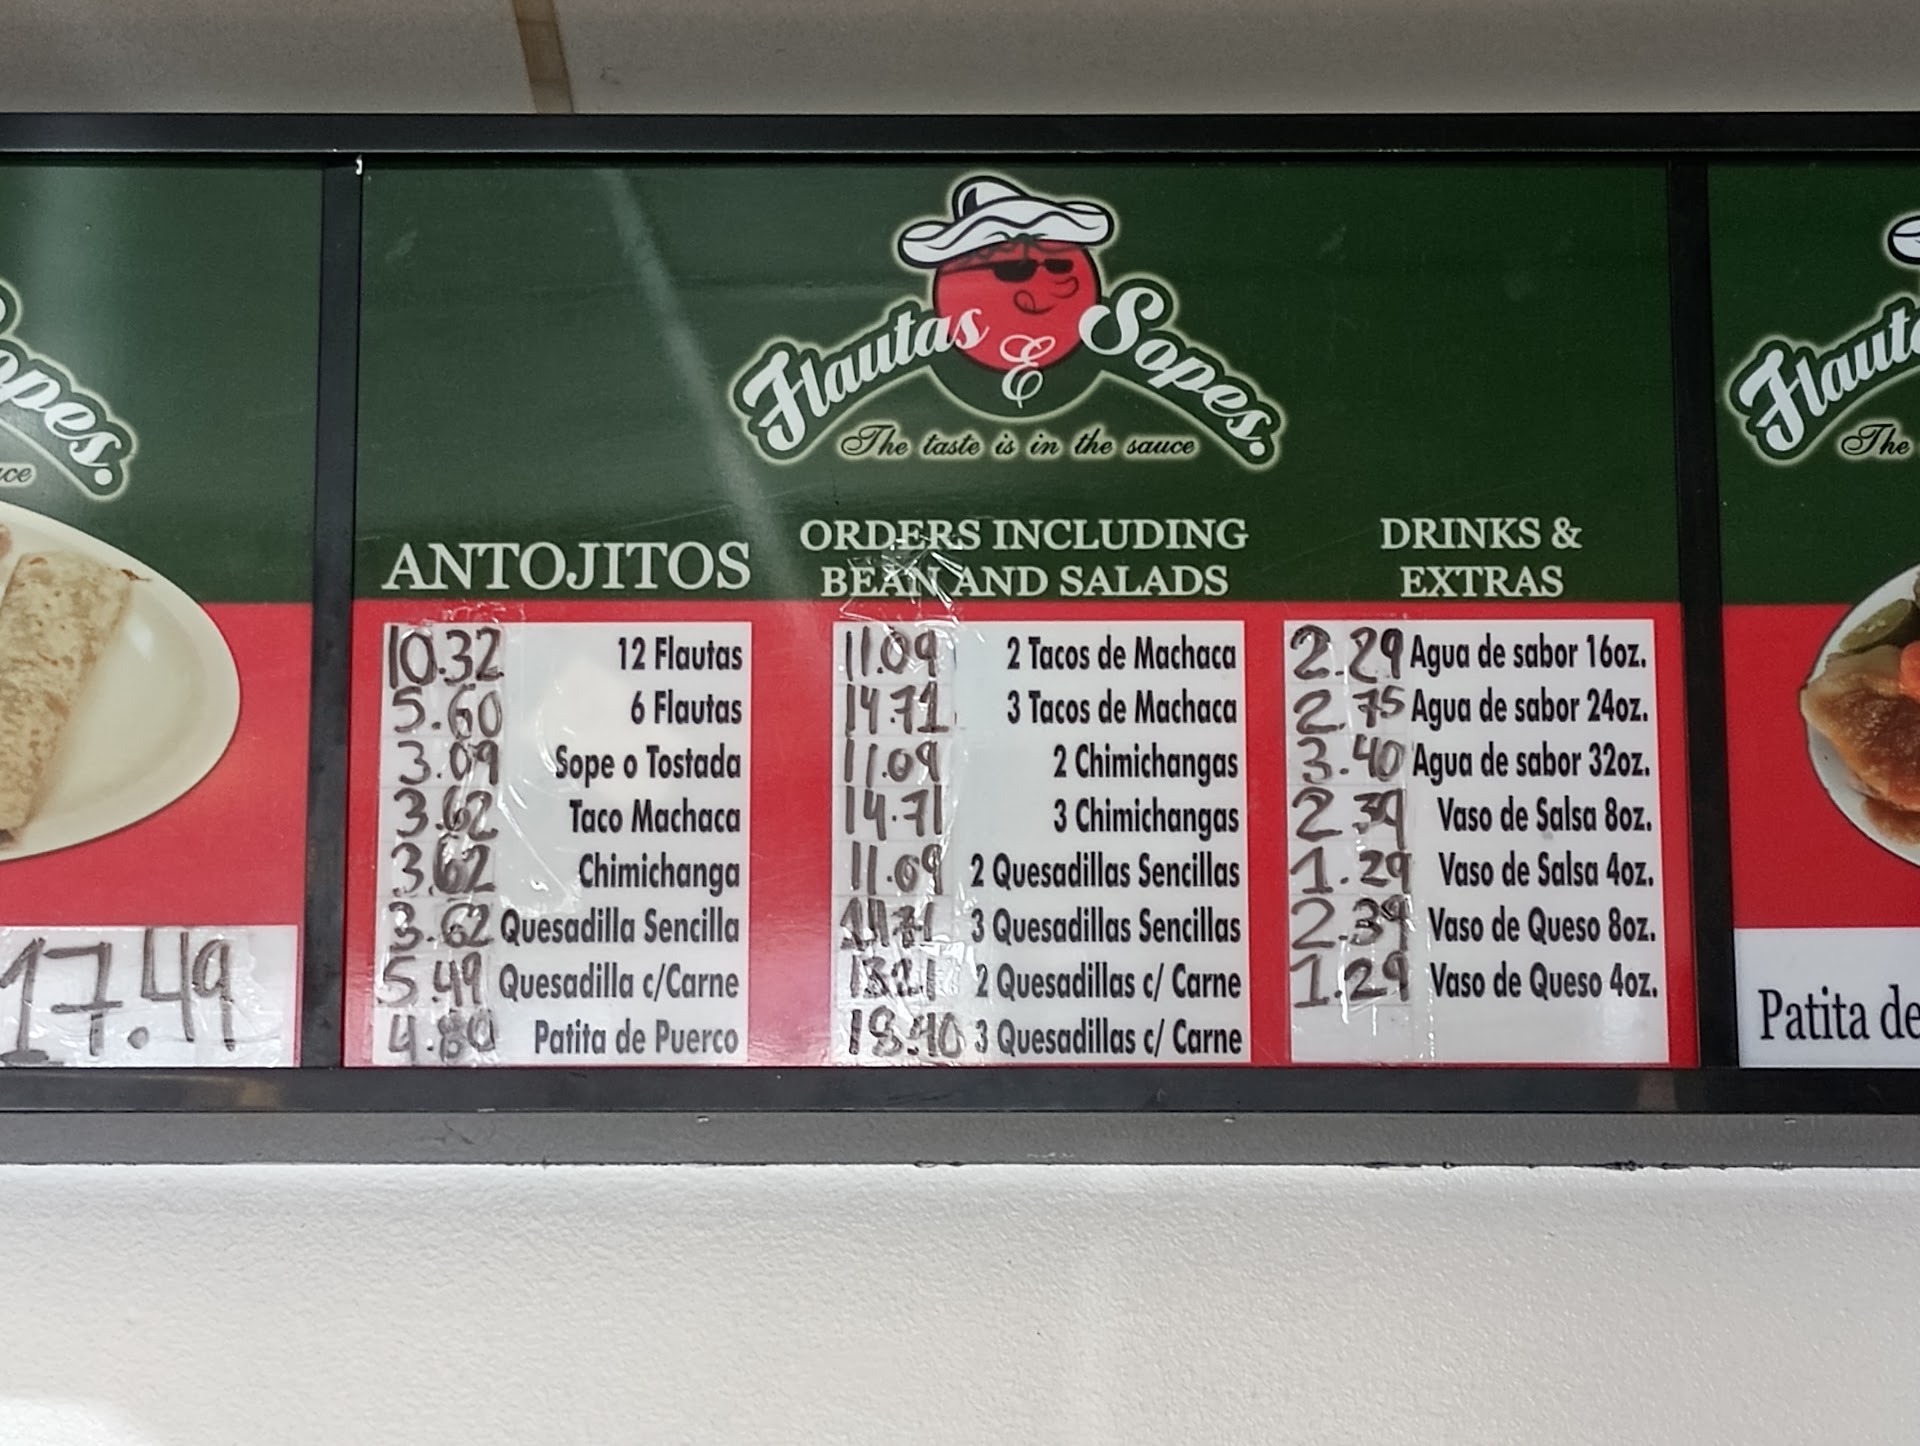 opes.
ce
17.49
Flautas & Sopes.
The taste is in the sauce
ANTOJITOS
10.32 12 Flautas
5.60 6 Flautas
3.09 Sope o Tostada
3.62 Taco Machaca
3.62 Chimichanga
3.62 Quesadilla Sencilla
5.49 Quesadilla c/Carne
4.80 Patita de Puerco
ORDERS INCLUDING
BEAN AND SALADS
11.09 2 Tacos de Machaca
14.71 3 Tacos de Machaca
11.09 2 Chimichangas
14.71 3 Chimichangas
11.09 2 Quesadillas Sencillas
14.71 3 Quesadillas Sencillas
13.21 2 Quesadillas c/ Carne
3 Quesadillas c/ Carne
DRINKS &
EXTRAS
2.29 Agua de sabor 16oz.
2.75 Agua de sabor 24oz.
3.40 Agua de sabor 32oz.
2.39 Vaso de Salsa 8oz.
1.29 Vaso de Salsa 4oz.
2.39 Vaso de Queso 8oz.
1.29 Vaso de Queso 4oz.
Flauta
The
Patita de